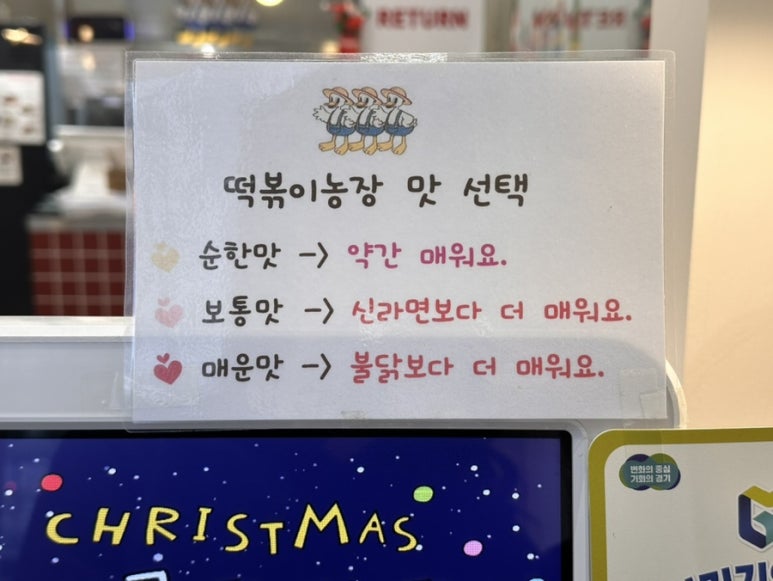 RETURN
떡볶이농장 맛 선택
순한맛 -> 약간 매워요.
보통맛 -> 신라면보다 더 매워요.
매운맛 -> 불닭보다 더 매워요.
CHRISTMAS
변화의 중심
기회의 경기